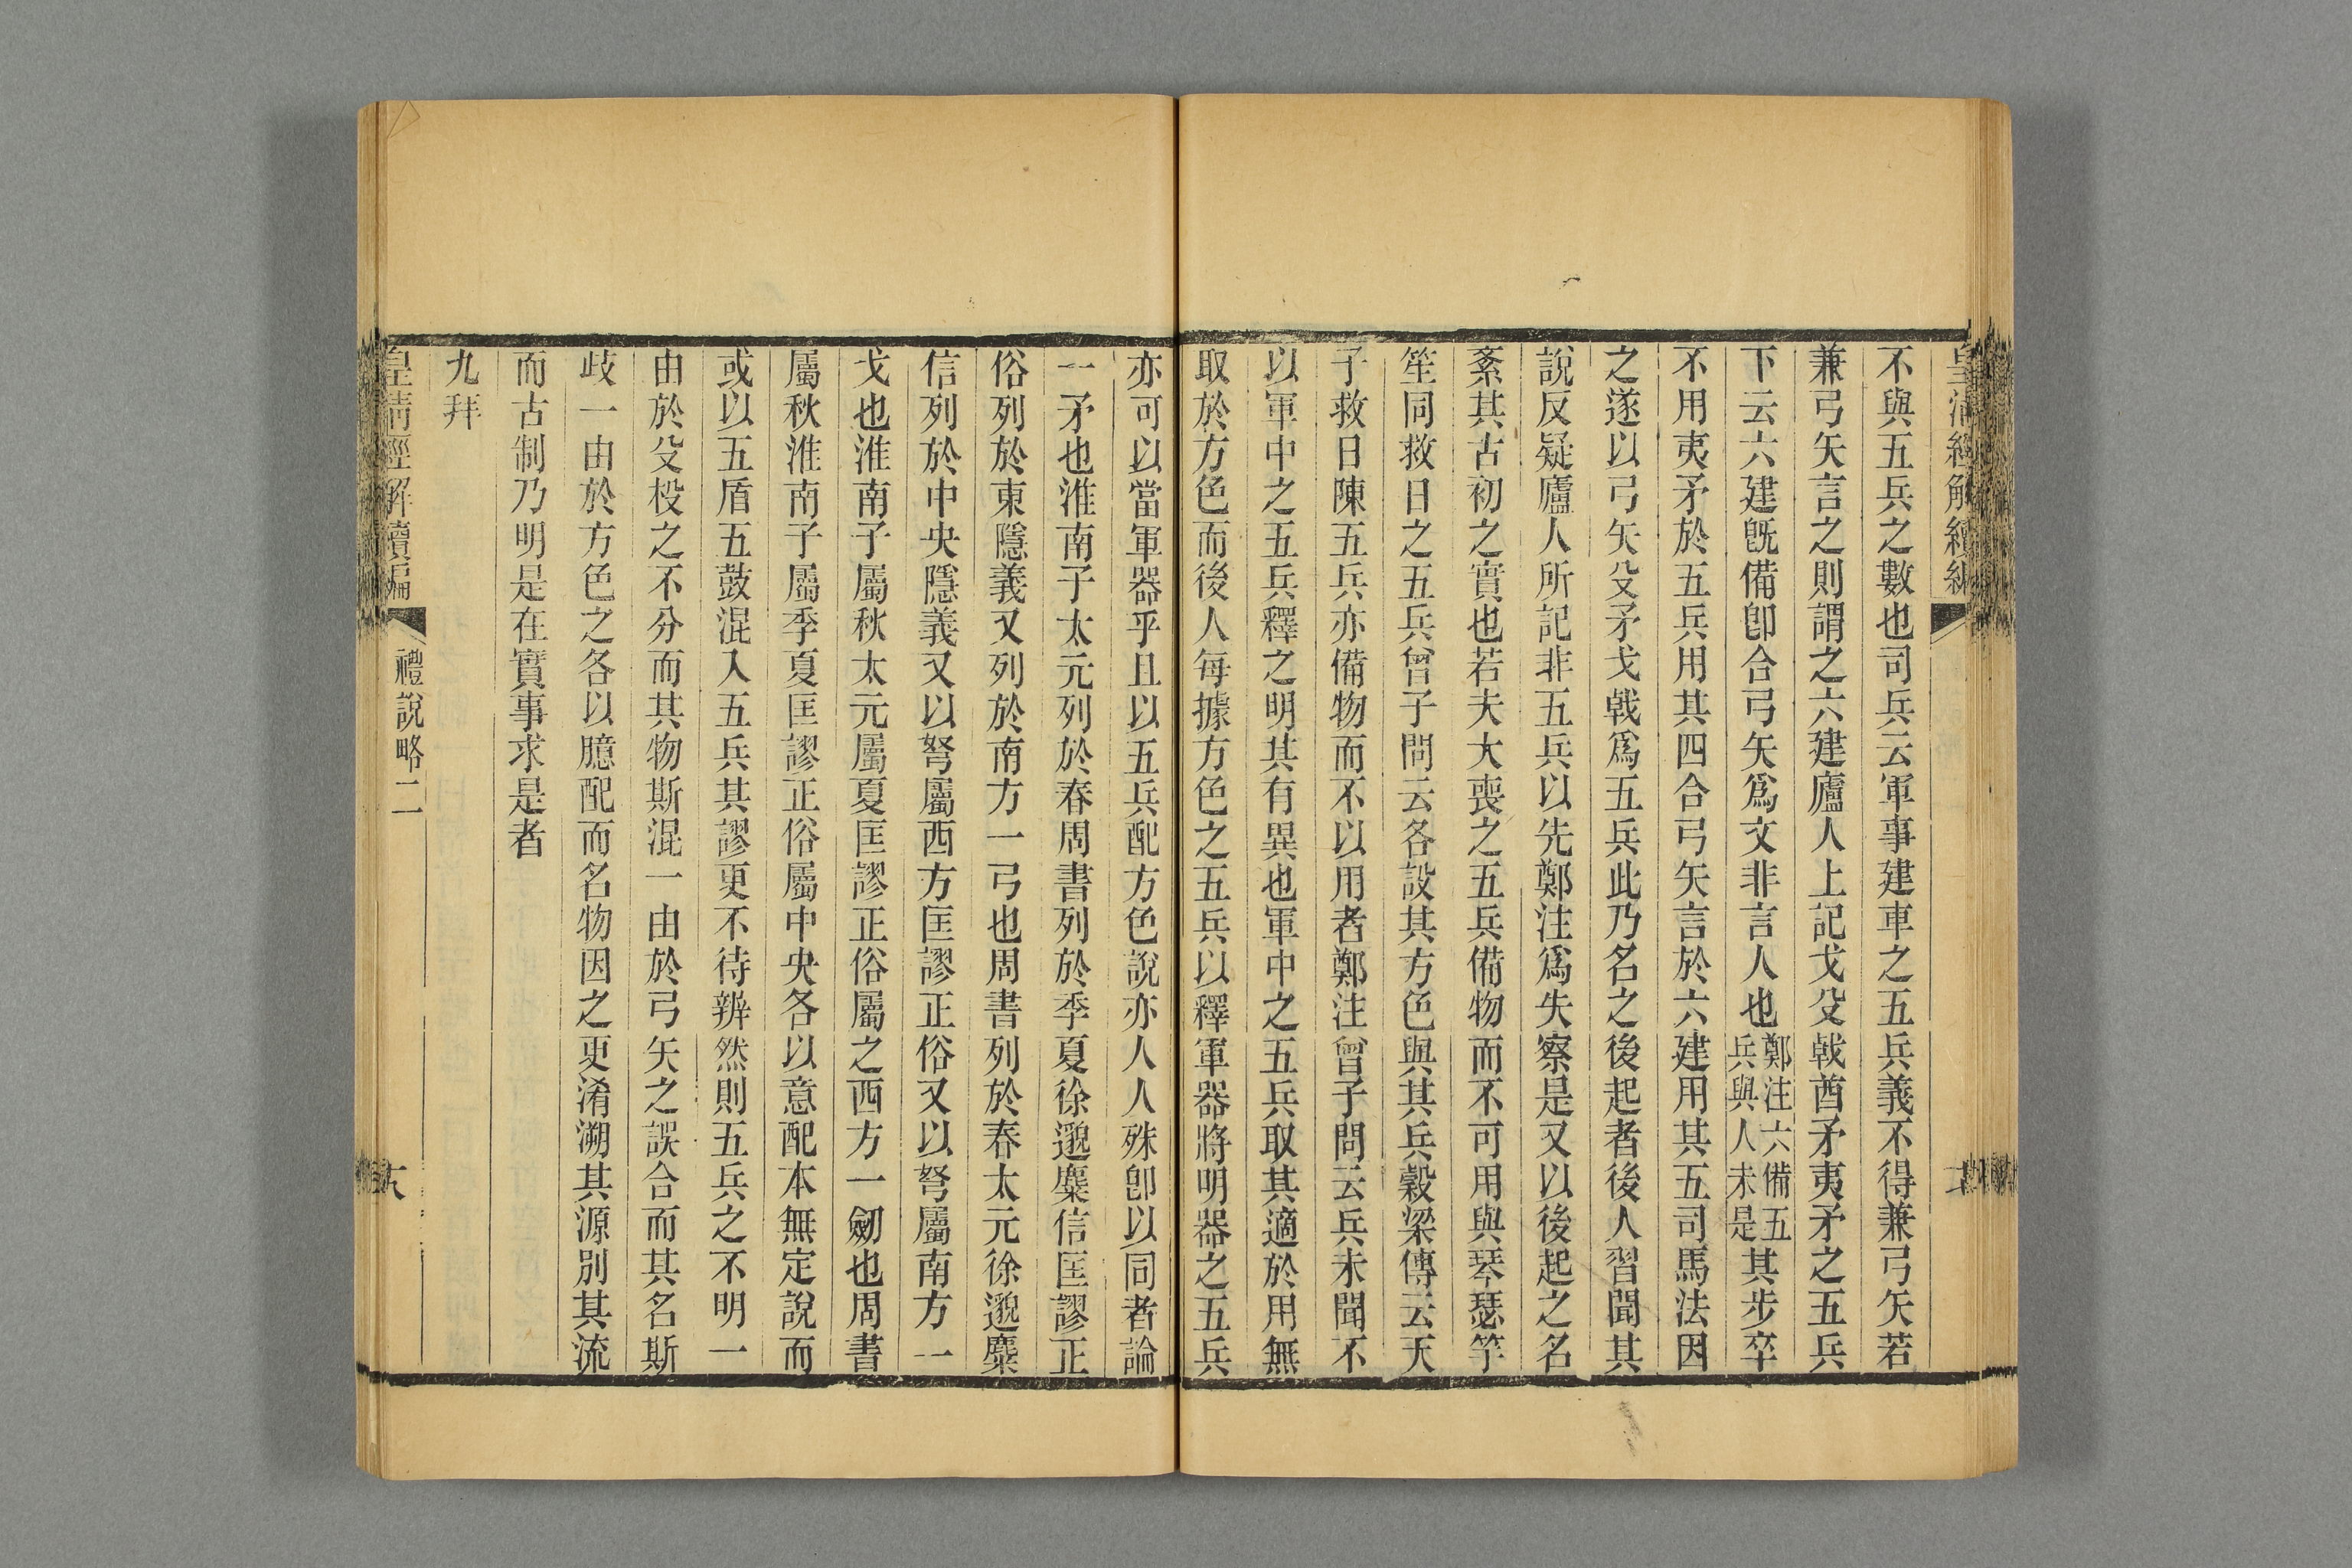 皇清經解續編
不與五兵之數也司兵云軍事建車之五兵義不得兼弓矢若
兼弓矢言之則謂之六建廬人上記戈殳戟酋矛夷矛之五兵
下云六建旣備卽合弓矢爲文非言人也鄭注六備五兵與人未是其步卒
不用夷矛於五兵用其四合弓矢言於六建用其五司馬法因
之遂以弓矢殳矛戈戟爲五兵此乃名之後起者後人習聞其
說反疑廬人所記非五兵以先鄭注爲失察是又以後起之名
紊其古初之實也若夫大喪之五兵備物而不可用與琴瑟竽
笙同救日之五兵曾子問云各設其方色與其兵穀梁傳云天
子救日陳五兵亦備物而不以用者鄭注曾子問云兵未聞不
以軍中之五兵釋之明其有異也軍中之五兵取其適於用無
取於方色而後人每據方色之五兵以釋軍器將明器之五兵
亦可以當軍器乎且以五兵配方色說亦人人殊卽以同者論
一矛也淮南子太元列於春周書列於季夏徐邈麋信匡謬正
俗列於東隱義又列於南方一弓也周書列於春太元徐邈麋
信列於中央隱義又以弩屬西方匡謬正俗又以弩屬南方一
戈也淮南子屬秋太元屬夏匡謬正俗屬之西方一劒也周書
屬秋淮南子屬季夏匡謬正俗屬中央各以意配本無定說而
或以五盾五鼓混入五兵其謬更不待辨然則五兵之不明一
由於殳杸之不分而其物斯混一由於弓矢之誤合而其名斯
歧一由於方色之各以臆配而名物因之更淆溯其源別其流
而古制乃明是在實事求是者
九拜
皇清經解續編
禮說略二